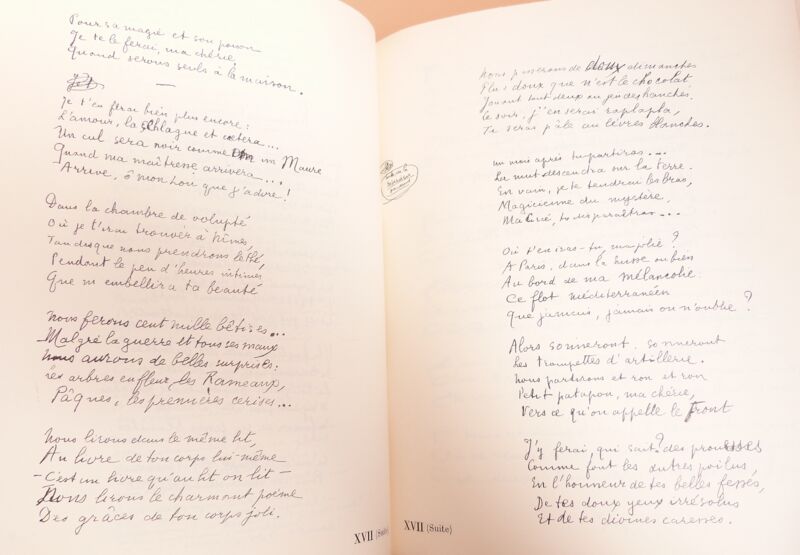 Pour sa magie et son pouvoir
Je te le ferai, ma chérie,
Quand serons seuls à la maison.
Je t'en ferai bien plus encore:
L'amour, la schlague et cætera...
Un cul sera noir comme un Maure
Quand ma maîtresse arrivera...
Arrive, ô mon Lou que j'adore!
Dans la chambre de volupté
Où je t'irai trouver à Nîmes,
Tandis que nous prendrons le thé,
Pendant le peu d'heures intimes
Que m'embellira ta beauté
Nous ferons cent mille bêtises...
Malgré la guerre et tous ses maux
Nous aurons de belles surprises:
Les arbres en fleur, les Rameaux,
Pâques, les premières cerises...
Nous lirons dans le même lit,
Au livre de ton corps lui-même
– C'est un livre qu'au lit on lit –
Nous lirons le charmant poème
Des grâces de ton corps joli.
XVII (Suite)
Nous passerons de doux dimanches
Plus doux que n'est le chocolat
Jouant tous deux au jeu des hanches.
Le soir, j'en serai raplapla,
Tu seras pâle aux lèvres blanches.
Un mois après tu partiras...
La nuit descendra sur la terre.
En vain, je te tendrai les bras,
Magicienne du mystère,
Ma Circé, tu disparaîtras...
Où t'en iras-tu, ma jolie?
A Paris, dans la Suisse ou bien
Au bord de ma mélancolie
Ce flot méditerranéen
Que jamais, jamais on n'oublie?
Alors sonneront, sonneront
Les trompettes d'artillerie.
Nous partirons et ron et ron
Petit patapon, ma chérie,
Vers ce qu'on appelle le Front
J'y ferai, qui sait? des prouesses
Comme font les autres poilus,
En l'honneur de tes belles fesses,
De tes doux yeux irrésolus
Et de tes divines caresses.
XVII (Suite)